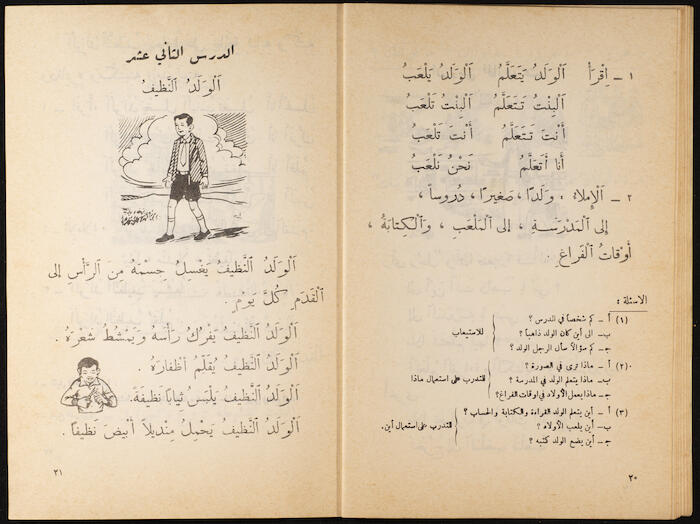 ١ ــ اِقْرَأْ    اَلْوَلَدُ يَتَعَلَّمُ    اَلْوَلَدُ يَلْعَبُ
اَلْبِنْتُ تَتَعَلَّمُ    اَلْبِنْتُ تَلْعَبُ
أَنْتَ تَتَعَلَّمُ    أَنْتَ تَلْعَبُ
أَنَا أَتَعَلَّمُ    نَحْنُ نَلْعَبُ
٢ ــ اَلْإِمْلَاءُ : وَلَدًا ، صَغِيرًا ، دُرُوساً ،
إِلَى اْلمَدْرَسَةِ ، إِلَى اْلمَلْعَبِ ، وَاْلكِتَابَةُ ،
أَوْقَاتُ اْلفَرَاغِ .
الاسئلة :
(١) أ ــ كم شخصاً في الدرس ؟
ب ــ الى أين كان الولد ذاهباً ؟
جـ ــ كم سؤالاً سأل الرجل الولد ؟
للاستيعاب
(٢) أ ــ ماذا ترى في الصورة ؟
ب ــ ماذا يتعلم الولد في المدرسة ؟
جـ ــ ماذا يعمل الأولاد في اوقات الفراغ ؟
للتدرب على استعمال ماذا
(٣) أ ــ أين يتعلم الولد القراءة والكتابة والحساب ؟
ب ــ أين يلعب الأولاد ؟
جـ ــ أين يضع الولد كتبه ؟
للتدرب على استعمال أين .
٢٠
الدرس الثاني عشر
اَلْوَلَدُ اَلنَّظِيفُ
اَلْوَلَدُ اَلنَّظِيفُ يَغْسِلُ جِسْمَهُ مِنَ اَلرَّأْسِ إِلَى
اْلقَدَمِ كُلَّ يَوْمٍ .
اَلْوَلَدُ اَلنَّظِيفُ يَفْرُكُ رَأْسَهُ وَيَمْشُطُ شَعْرَهُ .
اَلْوَلَدُ اَلنَّظِيفُ يُقَلِّمُ أَظْفَارَهُ .
اَلْوَلَدُ اَلنَّظِيفُ يَلْبَسُ ثِيَابًا نَظِيفَةً .
اَلْوَلَدُ اَلنَّظِيفُ يَحْمِلُ مِنْدِيلاً أَبْيَضَ نَظِيفًا .
٢١